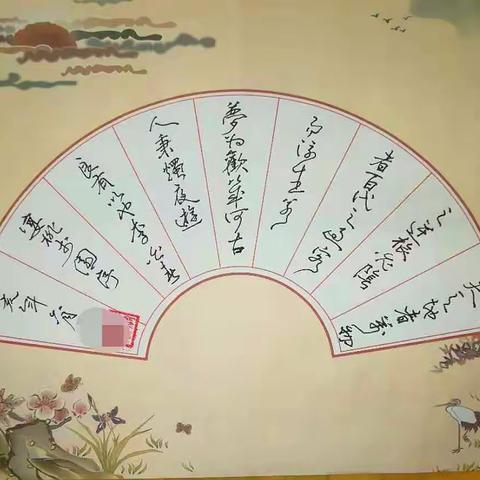 夫天地者萬物
之逆旅光陰
者百代之過客
而浮生若
夢為歡幾何古
人秉燭夜遊
良有以也李白春夜
宴桃李園序